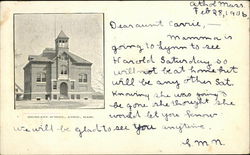 Athol Mass.
Feb 28, 1906
Dear aunt Carrie, —
Mamma is
going to Lynn to see
Harold Saturday so
will not be at home but
will be any other Sat.
Knowing she was going to
be gone she thought she
would let you know
we will be glad to see you anytime.